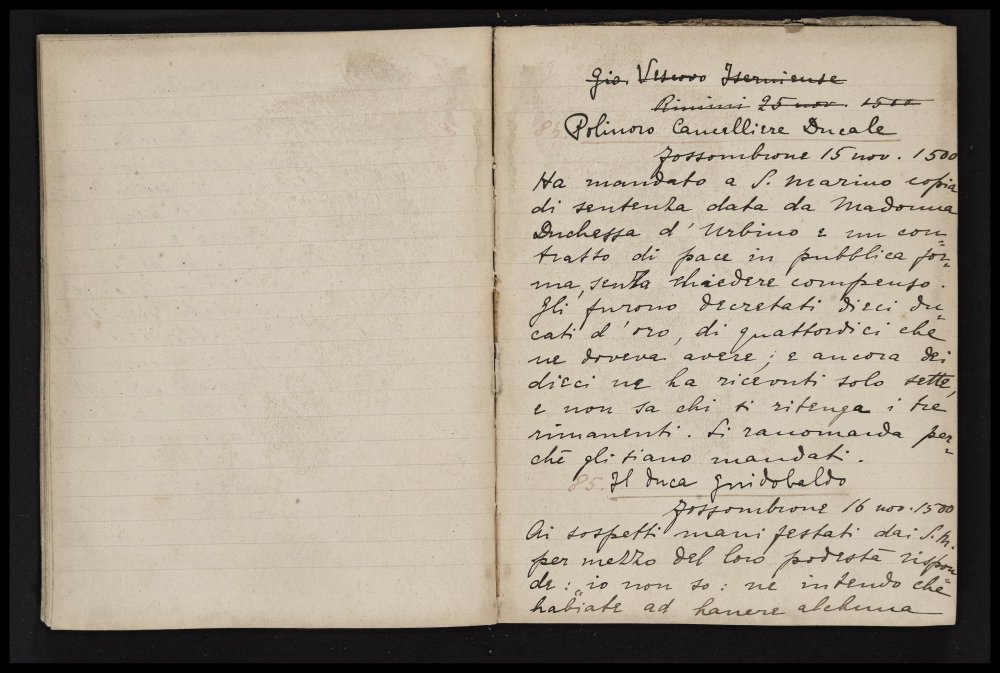 Gio. Vescovo Iserniense
Rimini 25 nov. 1500
Polinoro Cancelliere Ducale
Fossombrone 15 nov. 1500
Ha mandato a S. Marino copia
di sentenza data da Madonna
Duchessa d'Urbino e un con-
tratto di pace in pubblica for-
ma, senza chiedere compenso.
Gli furono decretati dieci du-
cati d'oro, di quattordici che
ne doveva avere; e ancora dei
dieci ne ha ricevuti solo sette,
e non sa chi si ritenga i tre
rimanenti. Si raccomanda per-
chè gli siano mandati.
85. Il Duca Guidobaldo
Fossombrone 16 nov. 1500
Ai sospetti manifestati dai S. M.
per mezzo del loro podestà rispon-
de: "io non so: ne intendo che
habiate ad havere alchuna